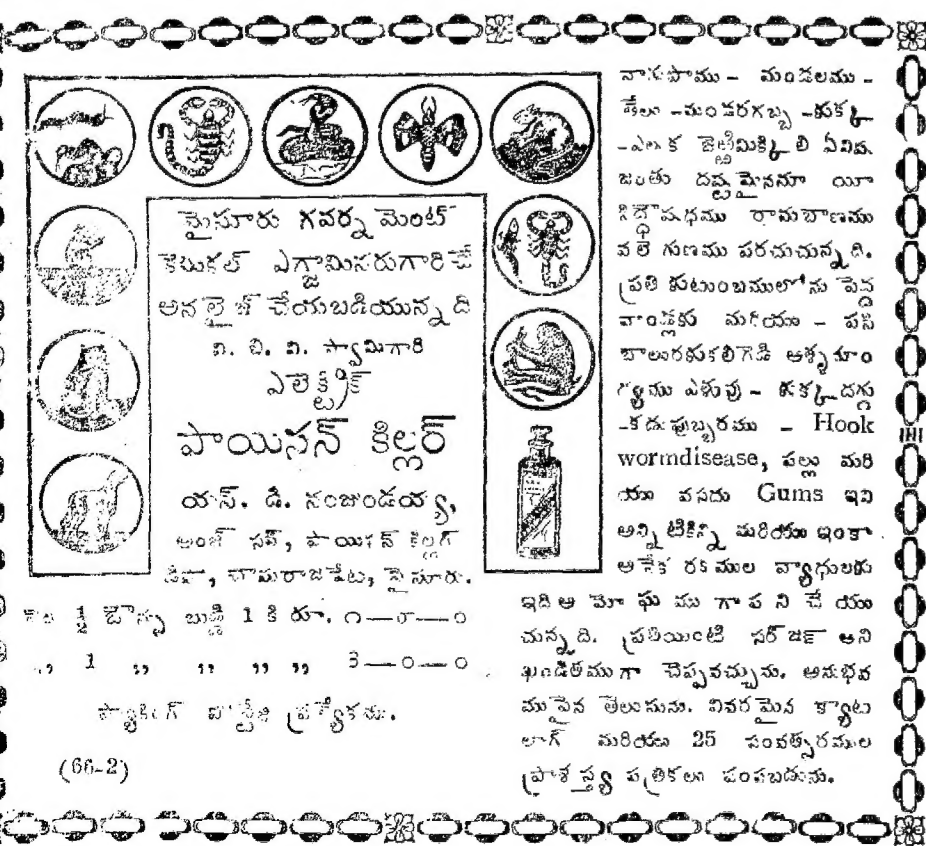 మైసూరు గవర్నమెంట్
కెమికల్ ఎగ్జామినరుగారిచే
అనలైజ్ చేయబడియున్నది
వి. బి. వి. స్వామిగారి
ఎలెక్ట్రిక్
పాయిసన్ కిల్లర్
యస్. డి. నంజుండయ్య,
అండ్ సన్, పాయిసన్ కిల్లర్
డిపో, చామరాజపేట, మైసూరు.
వెల ½ ఔన్సు బుడ్డి 1 కి రూ. ౧—౮—౦
,, 1 ,, ,, ,, ,, 3—౦—౦
ప్యాకింగ్ పోస్టేజి ప్రత్యేకము.
(66-2)
నాగుపాము - మండలము -
తేలు -మండరగబ్బ -కుక్క
-ఎలుక జెఱ్ఱిమిక్కిలి ఏవిష
జంతు దష్టమైననూ యీ
సిద్ధౌషధము రామబాణము
వలె గుణము పరచుచున్నది.
ప్రతి కుటుంబములోను పెద్ద
వాండ్లకు మరియు - పసి
బాలురకుకలిగెడి అశృతూం
గ్యము ఎళువు - కుక్కదగ్గు
-కడుపుబ్బరము - Hook
wormdisease, పల్లు మరి
యు వసరు Gums ఇవి
అన్నిటికిన్ని మరియు ఇంకా
అనేక రకముల వ్యాధులకు
ఇది అమోఘముగా పనిచేయు
చున్నది. ప్రతియింటి సర్జన్ అని
ఖండితముగా చెప్పవచ్చును. అనుభవ
ముపైన తెలుసును. వివరమైన క్యాట
లాగ్ మరియు 25 సంవత్సరముల
ప్రాశస్త్య పత్రికలు పంపబడును.